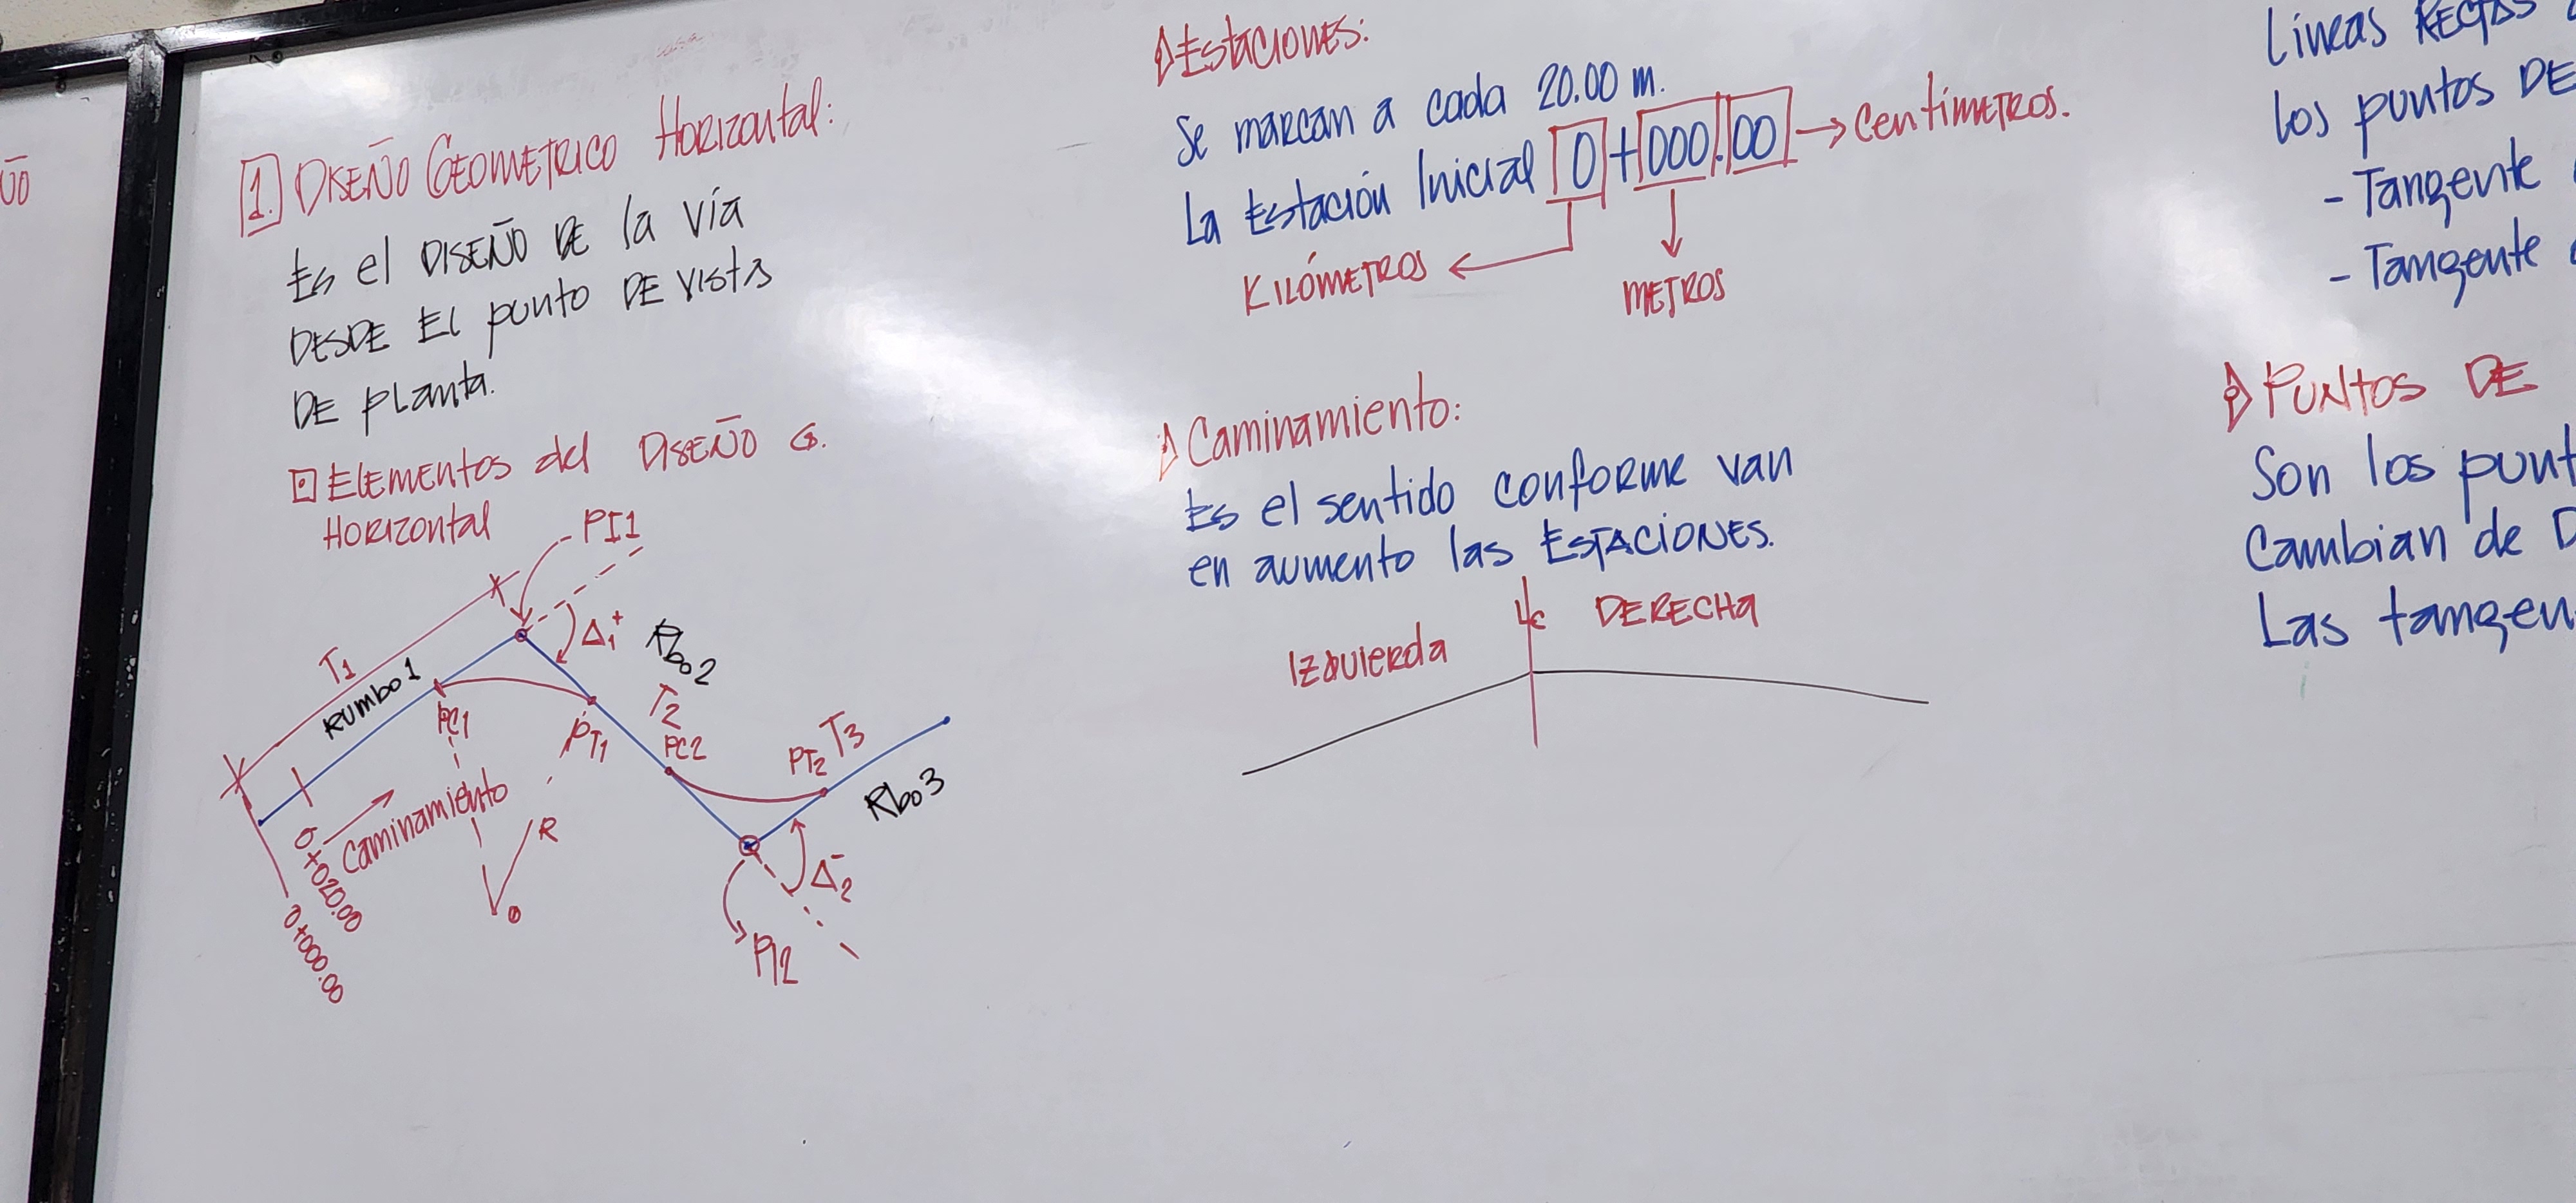 1. DISEÑO GEOMETRICO Horizontal:
Es el DISEÑO DE la vía
DESDE El punto DE vista
DE planta.
Elementos del DISEÑO G.
Horizontal
PI1
Δ1+
Rbo2
T1
Rumbo1
PC1
PT1
T2
PC2
PT2
T3
Rbo3
Caminamiento
0+020.00
0+000.00
R
Δ2-
PI2
Estaciones:
Se marcan a cada 20.00 m.
La Estación Inicial 0+000.00 → Centímetros.
Kilómetros
METROS
Caminamiento:
Es el sentido conforme van
en aumento las ESTACIONES.
Izquierda
DERECHA
Líneas RECTAS
los puntos DE
- Tangente
- Tangente
PUNTOS DE
Son los punt
Cambian de D
Las tangen